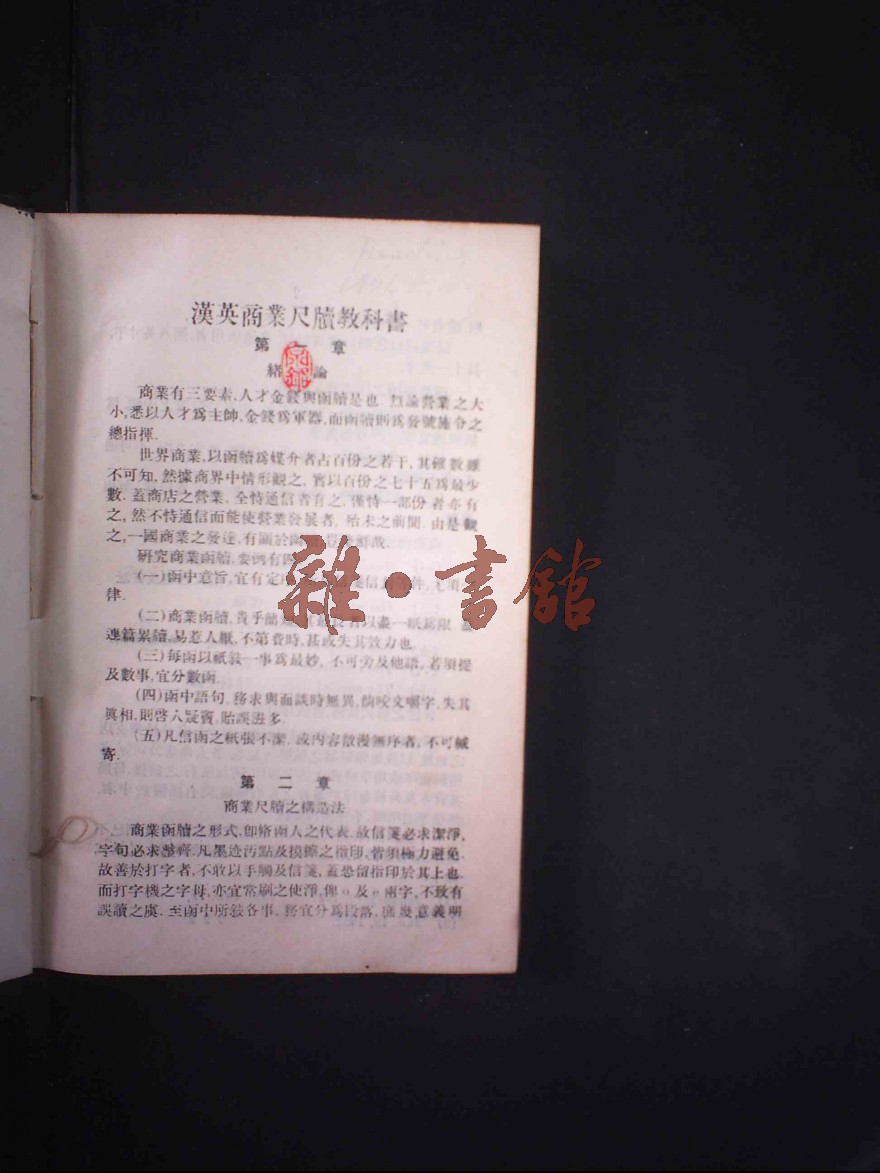 漢英商業尺牘教科書
第一章
緒論
商業有三要素,人才金錢與函牘是也.無論營業之大
小,悉以人才爲主帥,金錢爲軍器,而函牘則爲發號施令之
總指揮.
世界商業,以函牘爲媒介者占百份之若干,其確數雖
不可知,然據商界中情形觀之,實以百份之七十五爲最少
數.蓋商店之營業,全恃通信者有之,僅恃一部份者亦有
之,然不恃通信而能使營業發展者,殆未之前聞.由是觀
之,一國商業之發達,有關於函牘,豈淺鮮哉.
研究商業函牘,要例有四
(一)函中意旨,宜有定
律.
(二)商業函牘,貴乎簡 以盡一紙爲限,
連篇累牘,易惹人厭,不第費時,甚或失其效力也.
(三)每函以祇敍一事爲最妙,不可旁及他語,若須提
及數事,宜分數函.
(四)函中語句,務求與面談時無異,倘咬文嚼字,失其
眞相,則啓人疑竇,貽誤滋多.
(五)凡信函之紙張不潔,或內容散漫無序者,不可緘
寄.
第二章
商業尺牘之構造法
商業函牘之形式,卽脩函人之代表.故信箋必求潔淨,
字句必求整齊.凡墨迹污點及摸擦之指印,皆須極力避免.
故善於打字者,不敢以手觸及信箋,蓋恐留指印於其上也.
而打字機之字母,亦宜常刷之使淨,俾o及e兩字,不致有
誤讀之虞.至函中所敍各事,務宜分爲段落,庶幾意義明
雜·書館